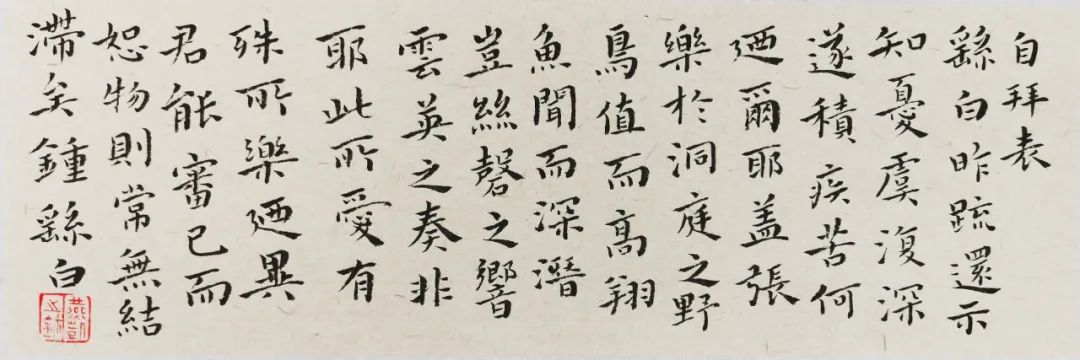 自拜表
繇白昨䟽還示
知憂虞復深
遂積疾苦何
廼爾耶盖張
樂於洞庭之野
鳥值而高翔
魚聞而深潛
豈絲磬之響
雲英之奏非
耶此所愛有
殊所樂廼異
君能審己而
恕物則常無結
滯矣鍾繇白